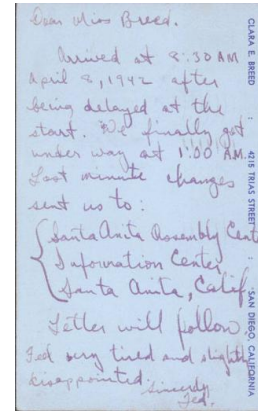 Dear Miss Breed.
Arrived at 8:30 AM
April 8, 1942 after
being delayed at the
start. We finally got
under way at 1:00 AM.
Last minute changes
sent us to:
Santa Anita Assembly Cent
Information Center
Santa Anita, Calif
Letter will follow.
very tired and slightly
disappointed
Sincerely
Ted.
CLARA E. BREED : 4215 TRIAS STREET : SAN DIEGO, CALIFORNIA